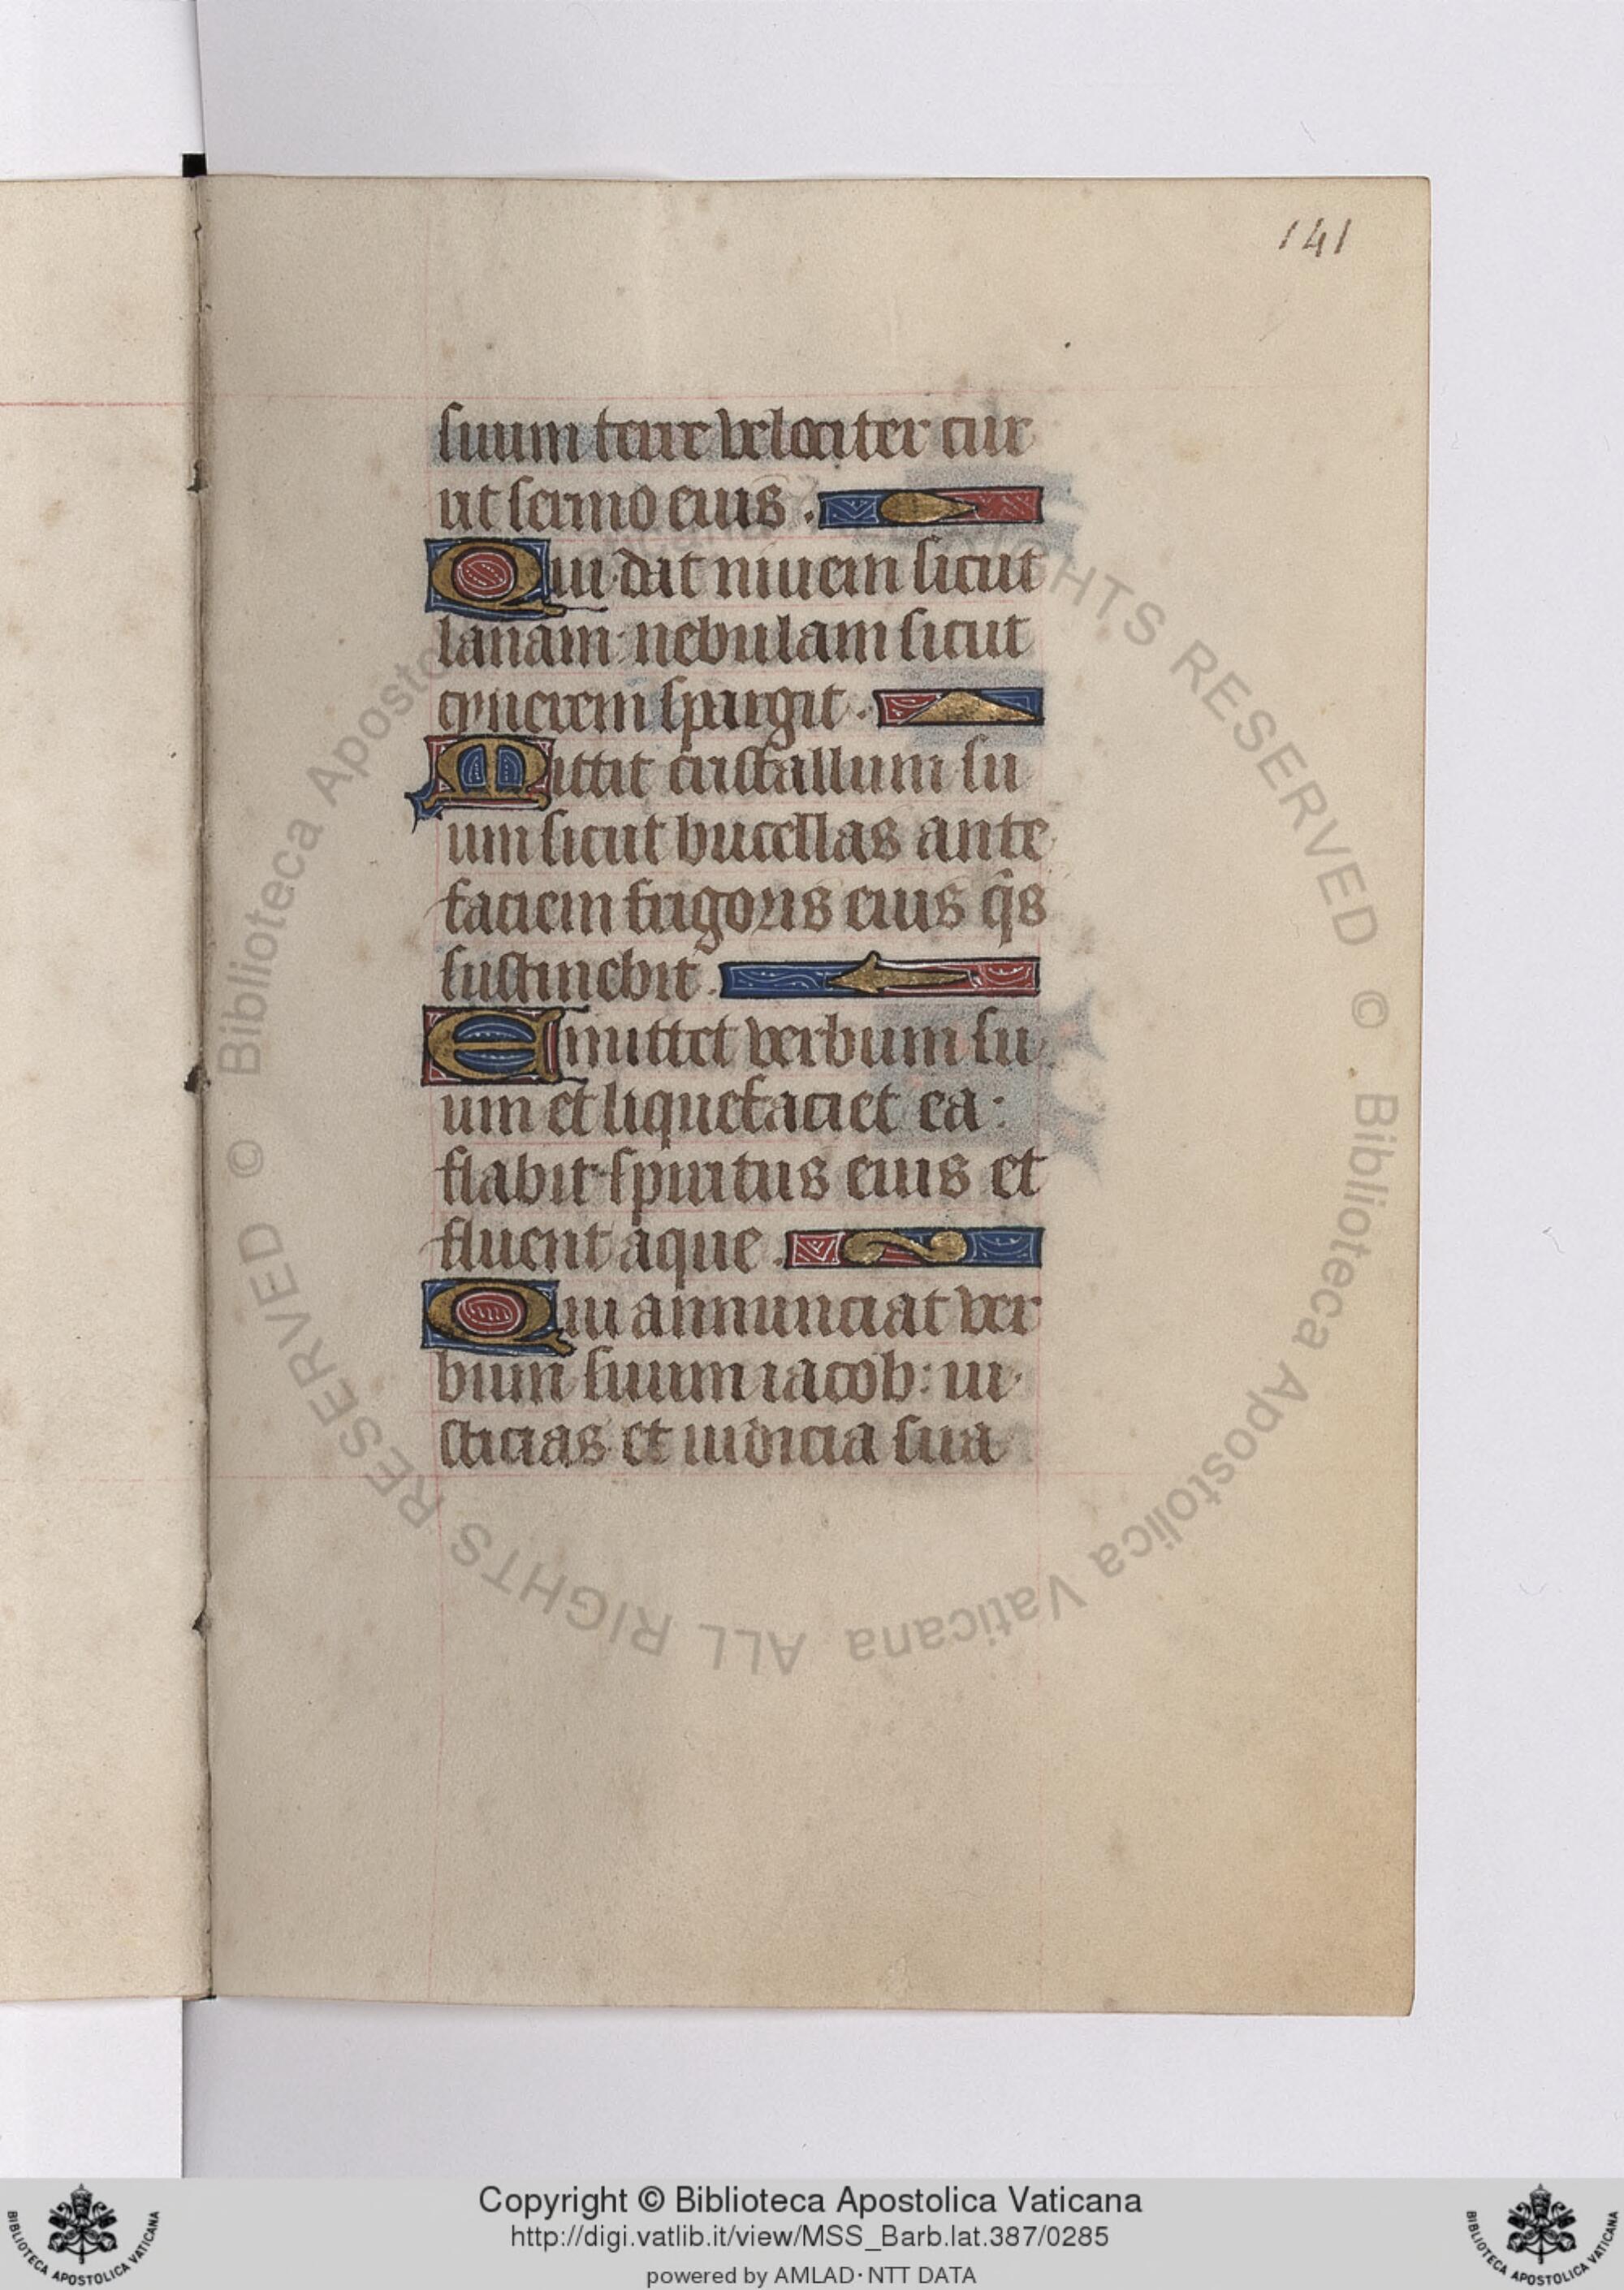 141
suum terre velociter cur
rit sermo eius.
Qui dat nivem sicut
lanam: nebulam sicut
cynerem spargit.
Mittit cristallum su
um sicut bucellas ante
faciem frigoris eius q̄s
sustinebit.
Emittet verbum su
um et liquefaciet ea:
flabit spiritus eius et
fluent aque.
Qui annunciat ver
bum suum iacob: iu
sticias et iudicia sua
© Biblioteca Apostolica Vaticana ALL RIGHTS RESERVED © Biblioteca Aposto RIGHTS RESERVED
Copyright © Biblioteca Apostolica Vaticana
http://digi.vatlib.it/view/MSS_Barb.lat.387/0285
powered by AMLAD·NTT DATA
BIBLIOTECA APOSTOLICA VATICANA
BIBLIOTECA APOSTOLICA VATICANA